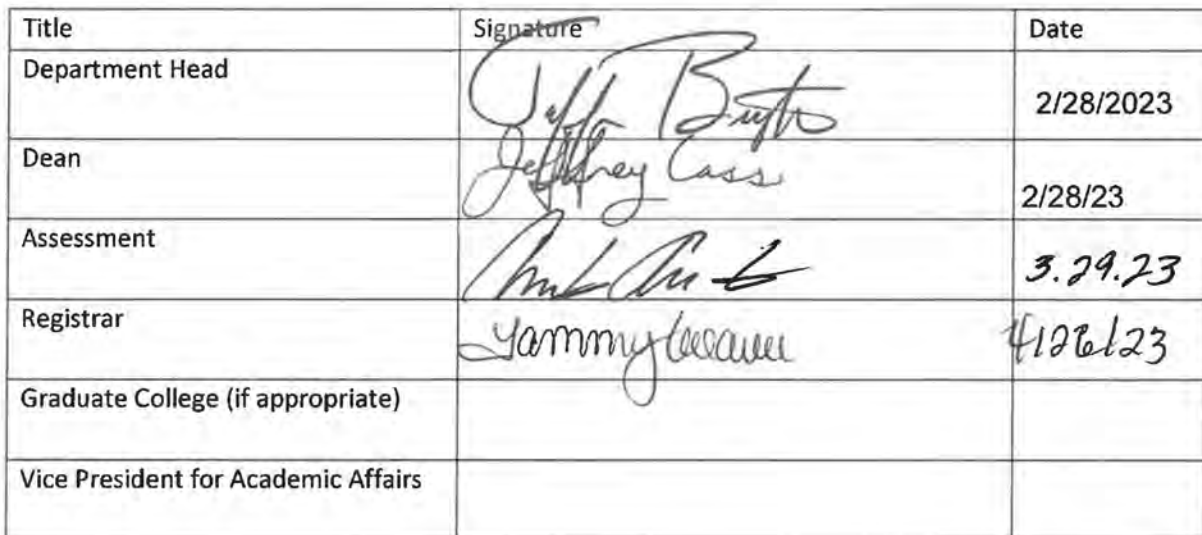 Title Signature Date
Department Head 2/28/2023
Dean Jeffrey Cass 2/28/23
Assessment 3.29.23
Registrar Tammy 4/26/23
Graduate College (if appropriate)
Vice President for Academic Affairs